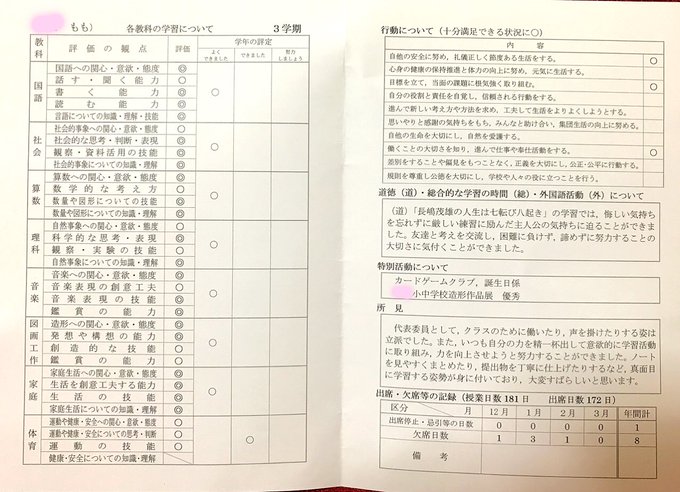 もも） 各教科の学習について 3学期
教科 評価の観点 評価 学年の評定
よくできました できました 努力しましょう
国語 国語への関心・意欲・態度 ◎
話す・聞く能力 〇
書く能力 ◎ 〇
読む能力 ◎
言語についての知識・理解・技能 ◎
社会 社会的事象への関心・意欲・態度 〇
社会的な思考・判断・表現 ◎
観察・資料活用の技能 ◎ 〇
社会的事象についての知識・理解 ◎
算数 算数への関心・意欲・態度 ◎
数学的な考え方 〇
数量や図形についての技能 ◎ 〇
数量や図形についての知識・理解 ◎
理科 自然事象への関心・意欲・態度 〇
科学的な思考・表現 ◎
観察・実験の技能 〇
自然事象についての知識・理解 ◎
音楽 音楽への関心・意欲・態度 ◎
音楽表現の創意工夫 〇
音楽表現の技能 ◎ 〇
鑑賞の能力 ◎
図画工作 造形への関心・意欲・態度 ◎
発想や構想の能力 ◎
創造的な技能 〇
鑑賞の能力 〇
家庭 家庭生活への関心・意欲・態度 ◎
生活を創意工夫する能力 〇
生活の技能 〇
家庭生活についての知識・理解 ◎
体育 運動や健康・安全への関心・意欲・態度 〇
運動や健康・安全についての思考・判断 〇
運動の技能 〇
健康・安全についての知識・理解
行動について（十分満足できる状況に〇）
内容
自他の安全に努め，礼儀正しく節度ある生活をする。 〇
心身の健康の保持推進と体力の向上に努め，元気に生活する。
目標を立て，当面の課題に根気強く取り組む。 〇
自分の役割と責任を自覚し，信頼される行動をする。
進んで新しい考え方や方法を求め，工夫して生活をよりよくしようとする。
思いやりと感謝の気持ちをもち，みんなと助け合い，集団生活の向上に努める。
自他の生命を大切にし，自然を愛護する。
働くことの大切さを知り，進んで仕事や奉仕活動をする。 〇
差別をすることや偏見をもつことなく，正義を大切にし，公正・公平に行動する。
規則を尊重し公徳を大切にし，学校や人々の役に立つことを行う。
道徳（道）・総合的な学習の時間（総）・外国語活動（外）について
（道）「長嶋茂雄の人生は七転び八起き」の学習では，悔しい気持ち
を忘れずに厳しい練習に励んだ主人公の気持ちに迫ることができま
した。友達と考えを交流し，困難に負けず，諦めずに努力することの
大切さに気付くことができました。
特別活動について
カードゲームクラブ，誕生日係
小中学校造形作品展 優秀
所見
代表委員として，クラスのために働いたり，声を掛けたりする姿は
立派でした。また，いつも自分の力を精一杯出して意欲的に学習活動
に取り組み，力を向上させようと努力することができました。ノート
を見やすくまとめたり，提出物を丁寧に仕上げたりするなど，真面目
に学習する姿勢が身に付いており，大変すばらしいと思います。
出席・欠席等の記録（授業日数181日 出席日数172日）
区分 月 12月 1月 2月 3月 年間計
出席停止・忌引等の日数 0 0 0 0 1
欠席日数 1 3 1 0 8
備考